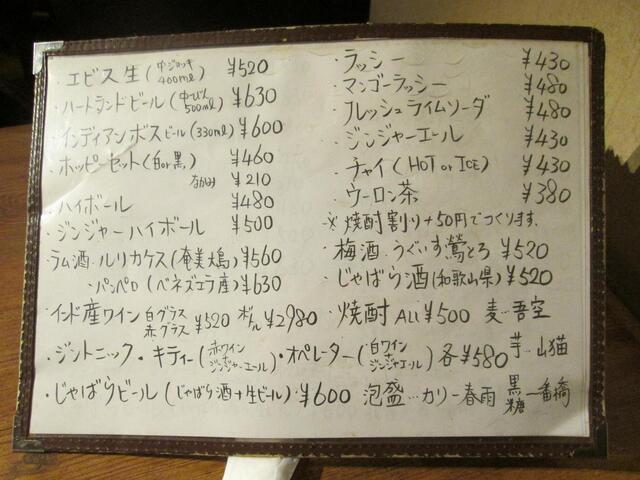 ・エビス生(中ジョッキ 400ml) ¥520
・ハートランドビール(中びん 500ml) ¥630
・インディアンボスビール(330ml) ¥600
・ホッピーセット(白or黒) ¥460
¥210
・ハイボール ¥480
・ジンジャーハイボール ¥500
ラム酒・ルリカケス(奄美大島) ¥560
・パンペロ(ベネズエラ産) ¥630
・インド産ワイン 白グラス 赤グラス ¥520 ボトル ¥2980
・ジントニック・キティー(赤ワイン+ジンジャーエール)・オペレーター(白ワイン+ジンジャエール) 各¥580
・じゃばらビール(じゃばら酒+生ビール)・¥600
・ラッシー ¥430
・マンゴーラッシー ¥480
・フレッシュライムソーダ ¥480
・ジンジャーエール ¥430
・チャイ(HOT or ICE) ¥430
・ウーロン茶 ¥380
※焼酎割り+50円でつくります。
・梅酒・うぐいす鶯とろ ¥520
・じゃばら酒(和歌山県) ¥520
・焼酎 ALL ¥500 麦…吾空
芋…山猫
泡盛…カリー春雨 黒糖…一番橋